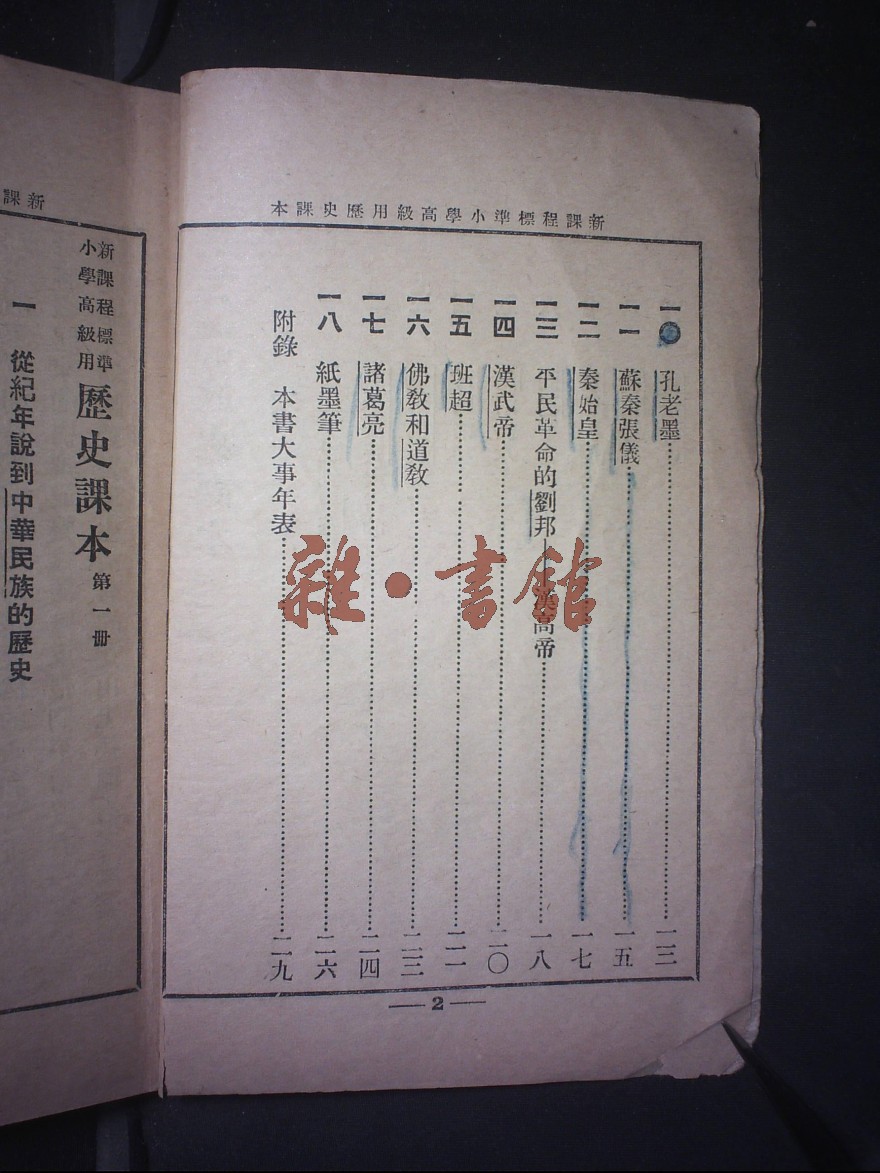 新課程標準小學高級用歷史課本
一〇 孔老墨……一三
一一 蘇秦張儀……一五
一二 秦始皇……一七
一三 平民革命的劉邦——漢高帝……一八
一四 漢武帝……二〇
一五 班超……二一
一六 佛教和道教……二三
一七 諸葛亮……二四
一八 紙墨筆……二六
附錄 本書大事年表……二九
— 2 —
雜·書館
新課
新課程標準
小學高級用
歷史課本 第一冊
一 從紀年說到中華民族的歷史